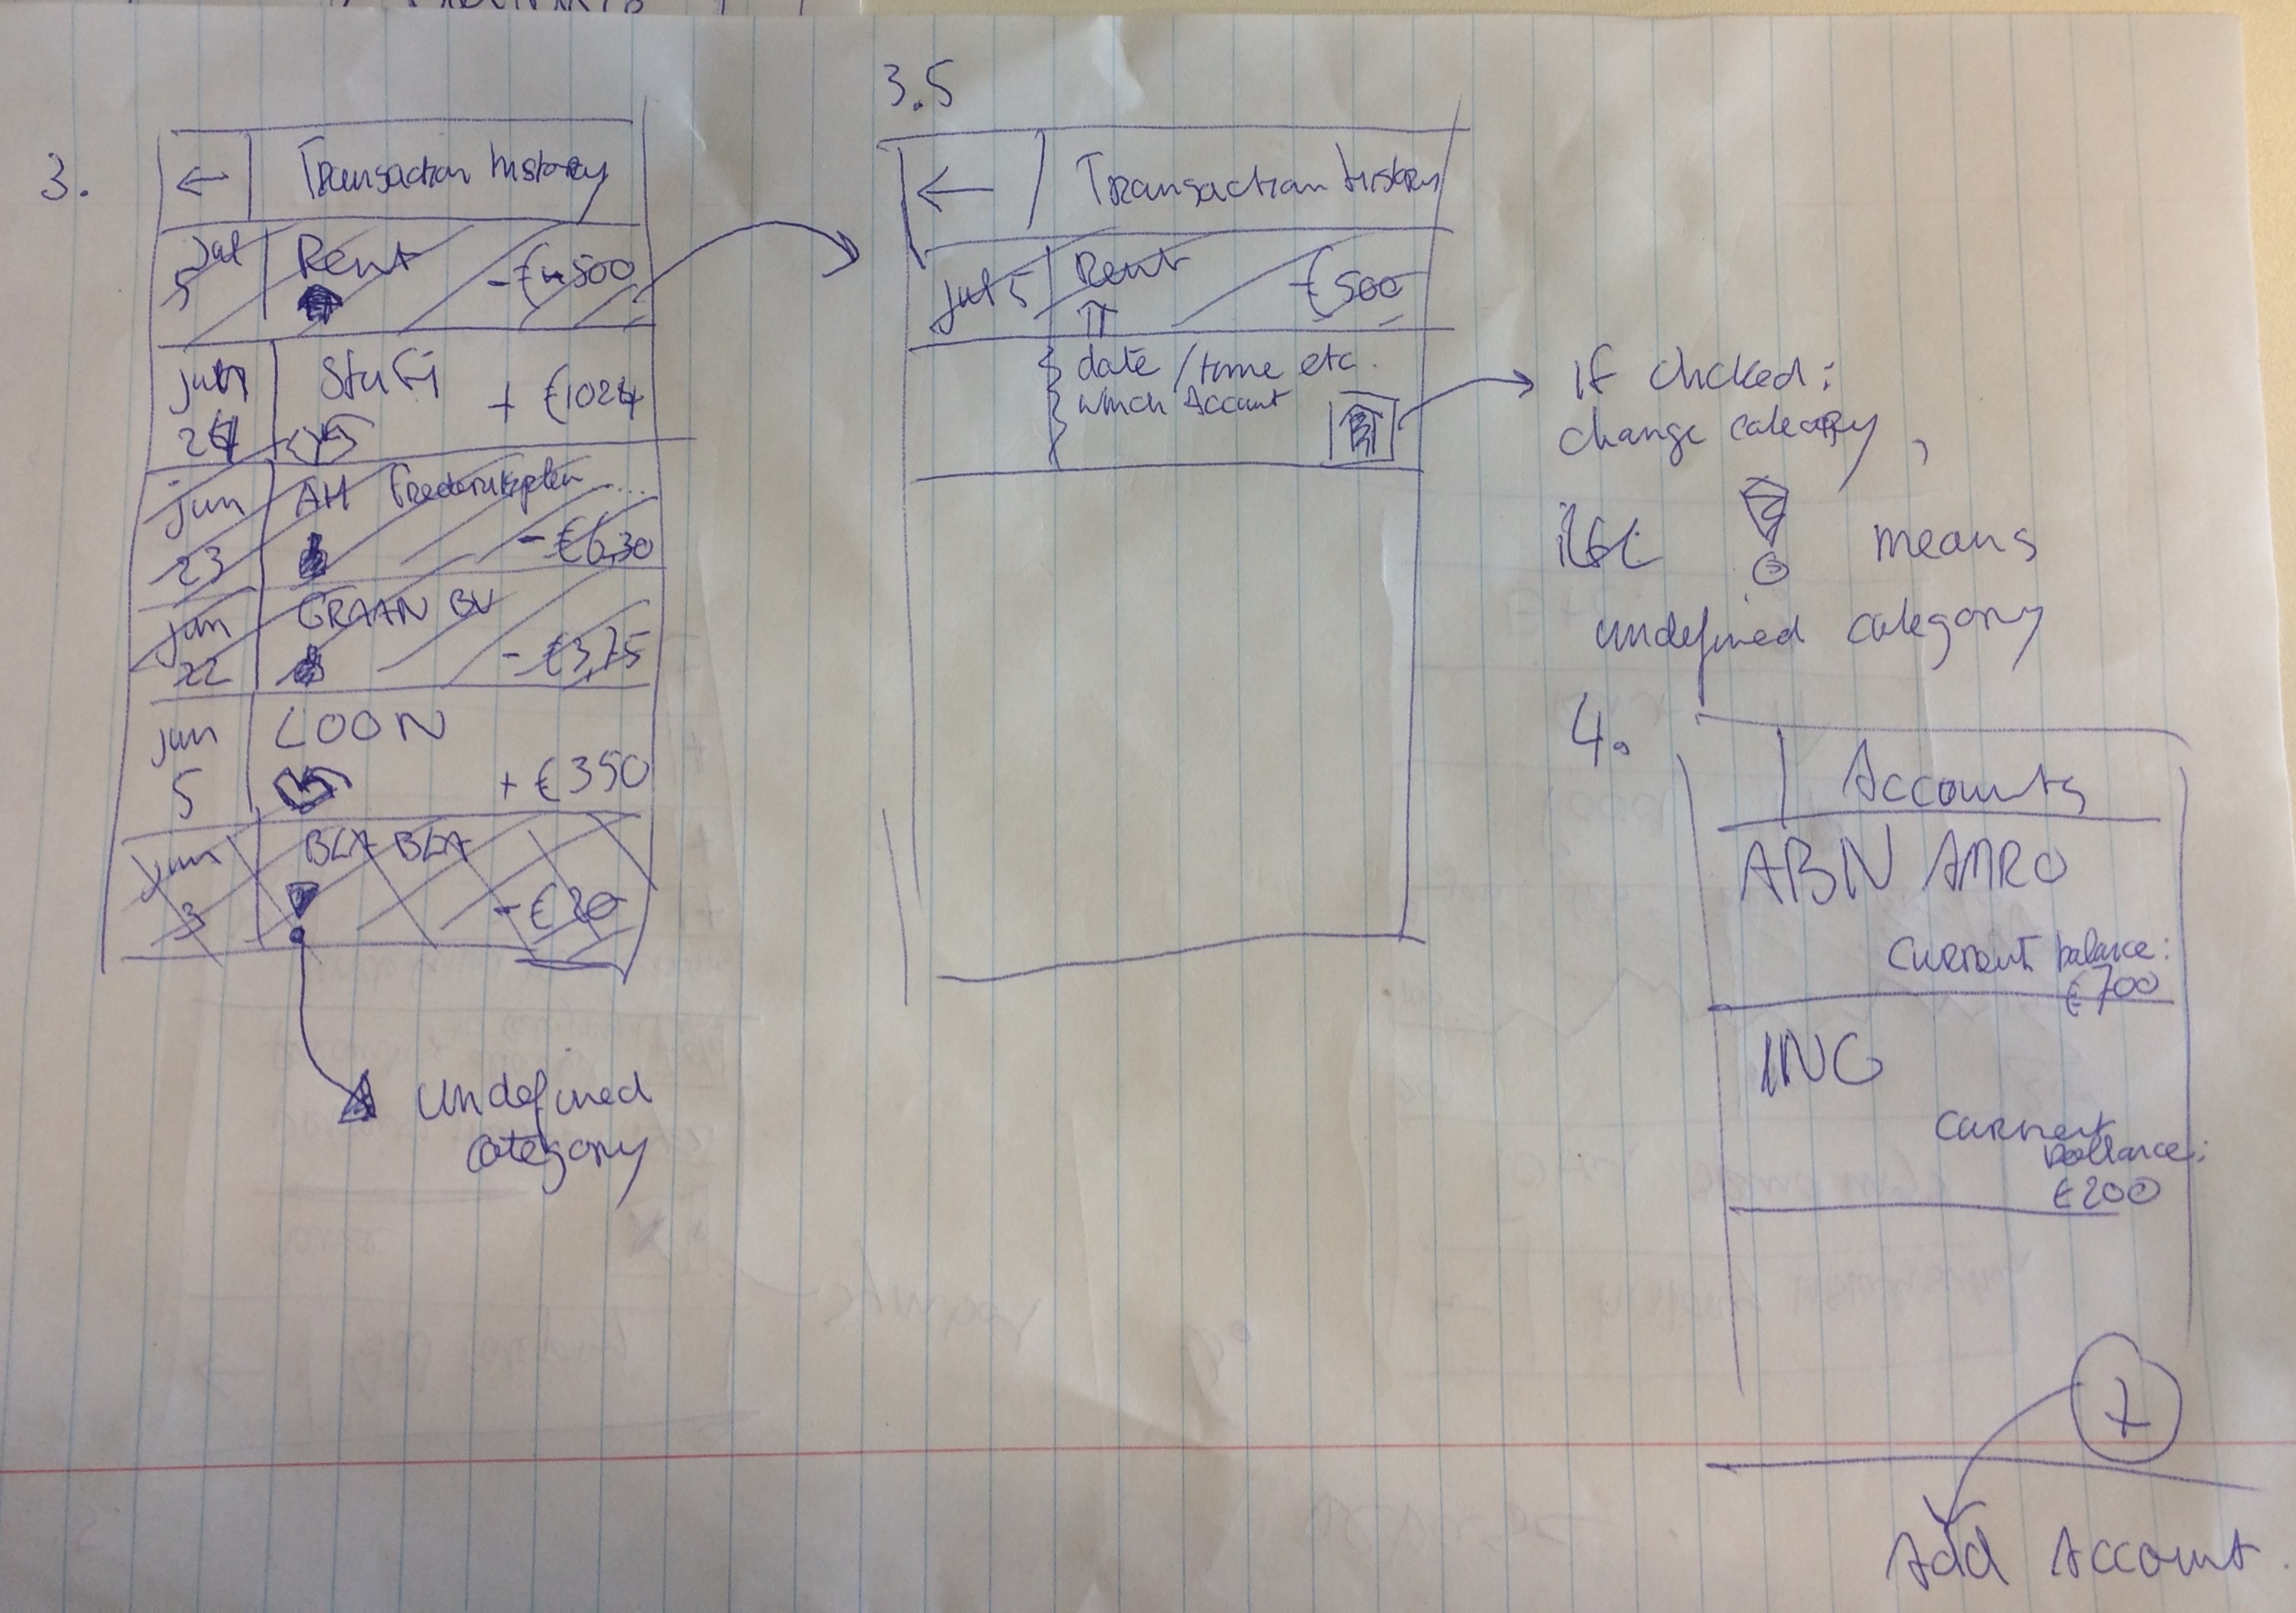 3.
← Transaction history
Jul
5
Rent
-€500
jun
Stufi
+ €1024
jun
23
AH
-€6,30
jun
22
GRAAN BV
-€3,75
jun
5
LOON
+ €350
jun
3
BLA BLA
-€20
undefined
category
3.5
← Transaction history
jul 5
Rent
-€500
date / time etc.
which Account
if clicked:
change category,
means
undefined category
4.
Accounts
ABN AMRO
Current balance:
€700
ING
Current
Ballance:
€200
+
Add Account.